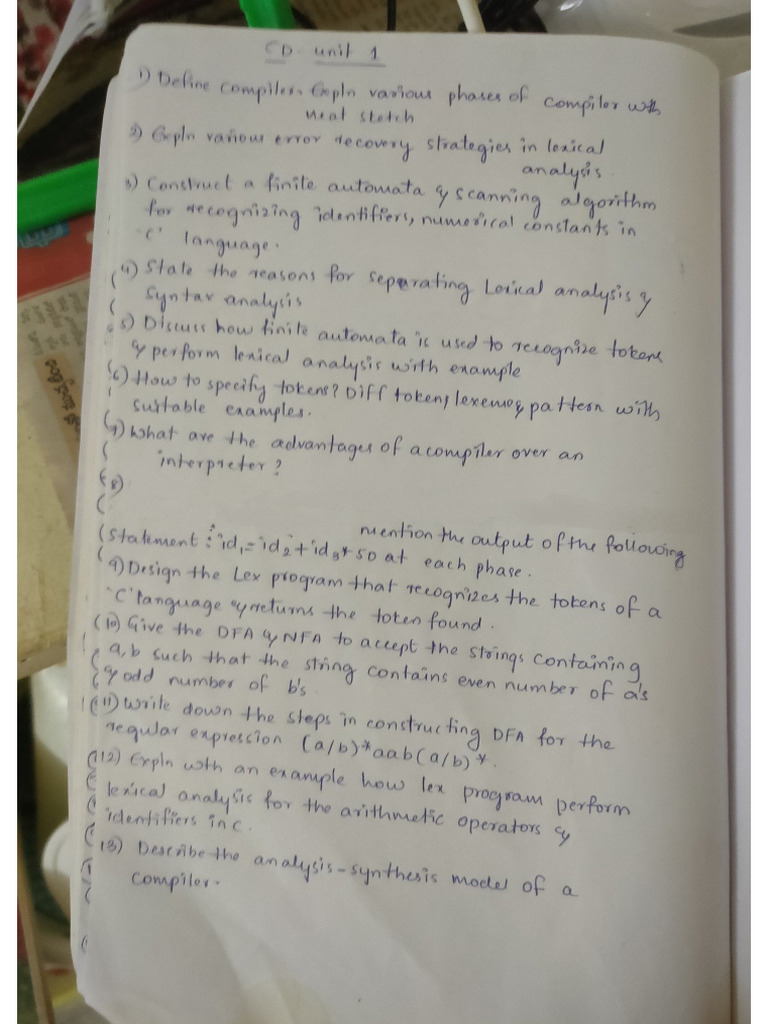 CD. unit 1
1) Define compiler. Expln various phases of compiler with
neat sketch
2) Expln various error recovery strategies in lexical
analysis.
3) Construct a finite automata & scanning algorithm
for recognizing identifiers, numerical constants in
'C' language.
4) State the reasons for separating Lexical analysis &
Syntax analysis
5) Discuss how finite automata is used to recognize tokens
& perform lexical analysis with example
6) How to specify tokens? Diff token, lexeme & pattern with
suitable examples.
7) What are the advantages of a compiler over an
interpreter?
8)
mention the output of the following
Statement : id1 = id2 + id3 * 50 at each phase.
9) Design the Lex program that recognizes the tokens of a
'C' language & returns the token found.
10) Give the DFA & NFA to accept the strings containing
a, b such that the string contains even number of a's
& odd number of b's.
11) Write down the steps in constructing DFA for the
regular expression (a/b)*aab(a/b)*.
12) Expln wth an example how lex program perform
lexical analysis for the arithmetic operators &
identifiers in c.
13) Describe the analysis-synthesis model of a
compiler.